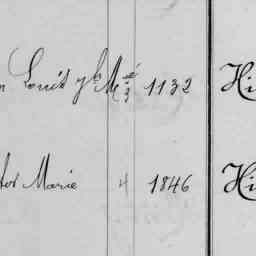 Louis M 3 1132 Hi
Marie 4 1846 Hi